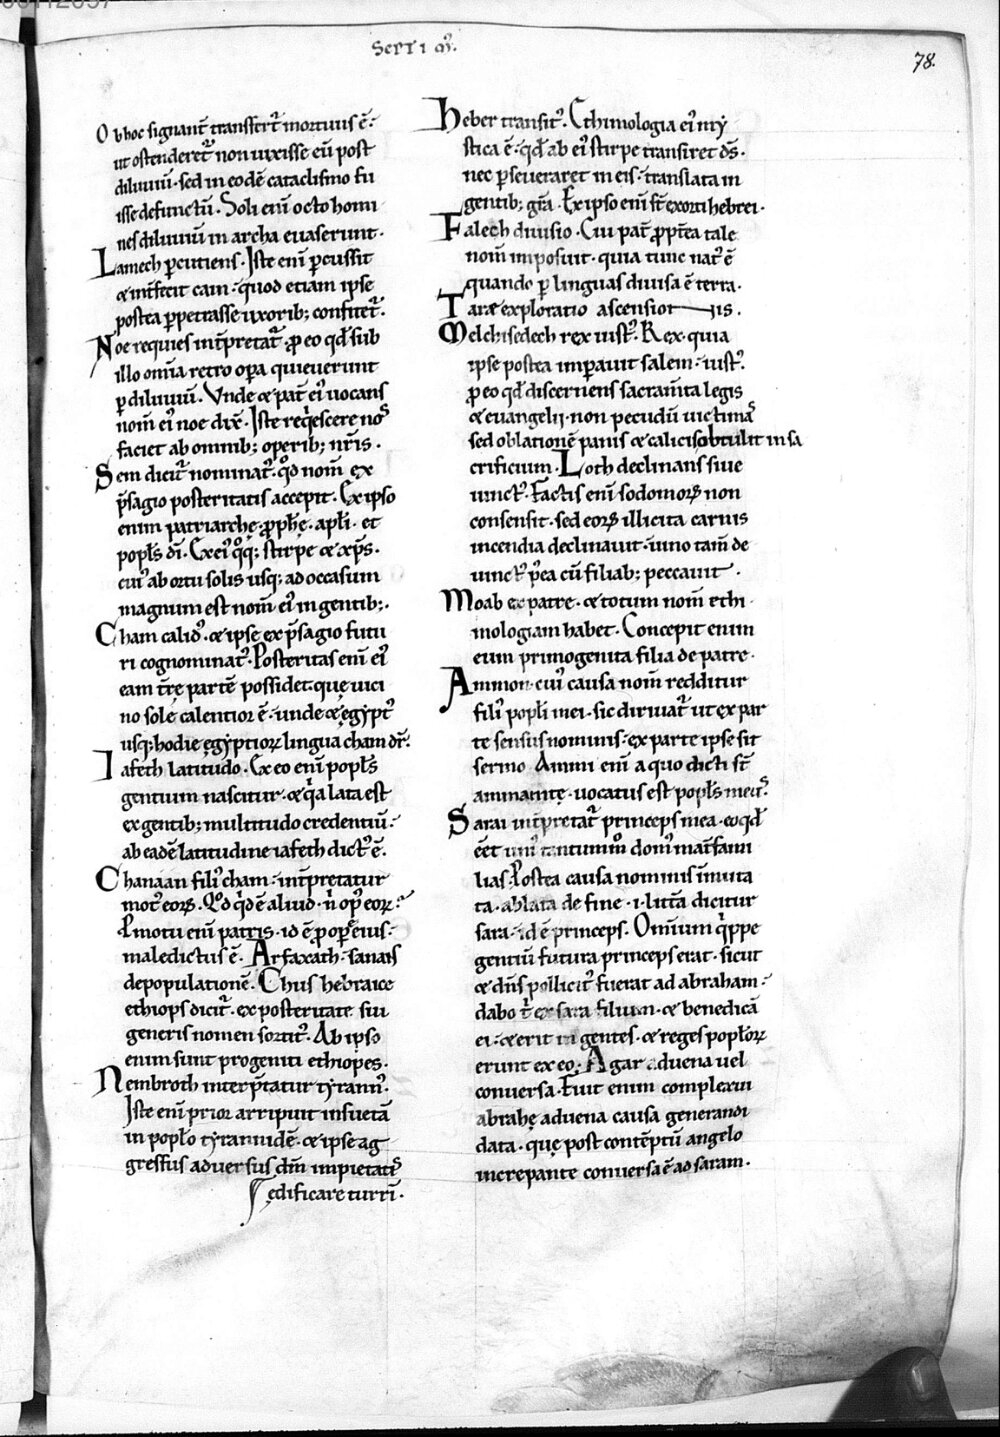 Septimꝰ.
78.
Ob hoc signant̄ transfert̄ mortuus ē·
ut ostenderet̄ non uixisse eū post
diluuiū· sed in eodē cataclismo fu
isse defunctū. Soli eni octo homi
nes diluuiū in archa euaserunt·
Lamech ꝑcutiens. Iste eni ꝑcussit
& int̄fecit cain· quod etiam ipse
postea ꝑpetrasse uxorib; confitet̄.
Noe requies int̄pretat̄ ꝓ eo qđ sub
illo om̄ia retro oꝑa quieuerunt
ꝑ diluuiū. Vnde & pat̄ eiꝰ uocans
nom̄ eiꝰ noe dix̄. Iste reqͥescere noˢ
faciet ab omnib; operib; nr̄is.
Sem dicit̄ nominatꝰ. qͦd nom̄ ex
p̄sagio posteritatis accepit. Ex ipso
enim patriarchę· ꝓphę· apl̄i· et
popl̄s dī. Ex eiꝰ qͦq; stirpe & xp̄s.
cuiꝰ ab ortu solis usq; ad occasum
magnum est nom̄ eiꝰ in gentib;.
Cham calidꝰ· & ipse ex p̄sagio futu
ri cognominatꝰ. Posteritas eni eiꝰ
eam t̄rę partē possidet· que uici
no sole calentior ē· unde & ęgyptꝰ
usq; hodie ęgyptioꝝ lingua cham dr̄.
Iafeth latitudo. Ex eo eni popl̄s
gentium nascitur· & qͥa lata est
ex gentib; multitudo credentiū·
ab eadē latitudine iafeth dictꝰ ē.
Chanaan filiꝰ cham· int̄pretatur
motꝰ eoꝝ. Qͦd qͥd ē aliud· n̄ opꝰ eoꝝ·
P motu eni patris· id ē ꝓ oꝑe eius·
maledictus ē. Arfaxath· sanans
depopulationē. Chus hebraice
ethiops dicit̄· ex posteritate sui
generis nomen sortitꝰ. Ab ipso
enim sunt progeniti ethiopes.
Nembroth interp̄tatur tyrannꝰ.
Iste eni prior arripuit insuetā
in popl̄o tyrannidē· & ipse ag
gressus aduersus dm̄ impietatiˢ
ędificare turrī.
Heber transitꝰ. Ethimologia eiꝰ my
stica ē· qđ ab eiꝰ stirpe transiret dś·
nec ꝑseueraret in eis· translata in
gentib; gr̄a. Ex ipso eni st̄ exorti hebrei.
Falech diuisio. Cui pat̄ ꝓpt̄ea tale
nom̄ imposuit· quia tunc natꝰ ē
quando ꝑ linguas diuisa ē terra.
Tarae exploratio ascensionis.
Melchisedech rex iustꝰ. Rex· quia
ipse postea imꝑauit salem· iustꝰ.
ꝓ eo qđ discernens sacram̄ta legis
& euangelii· non pecudū uictimaˢ
sed oblationē panis & calicis obtulit in sa
crificium. Loth declinans siue
uinctꝰ. Factis eni sodomoꝝ non
consensit· sed eoꝝ illicita carnis
incendia declinauit· uino tam̄ de
uinctꝰ p̄ea cū filiab; peccauit.
Moab ex patre· & totum nom̄ ethi
mologiam habet. Concepit enim
eum primogenita filia de patre·
Ammon· cuiꝰ causa nom̄ redditur
filiꝰ popl̄i mei· sic diriuat̄ ut ex par
te sensus nominis· ex parte ipse sit
sermo. Ammi eni a quo dicti st̄
ammanitę· uocatus est popl̄s meuˢ.
Sarai int̄pretat̄ princeps mea· eo qđ
eēt uniꝰ tantummͦ domꝰ mat̄fami
lias. Postea causa nominis inmuta
ta· ablata de fine ·i· litt̄a dicitur
sara· id ē princeps. Omnium qͥppe
gentiū futura princeps erat· sicut
& dn̄s pollicitꝰ fuerat ad abraham·
dabo t̄ ex sara filium· & benedicā
ei· & erit in gentes· & reges popl̄oꝝ
erunt ex eo. Agar aduena uel
conuersa. Fuit enim complexui
abrahę aduena causa generandi
data· quę post contēptū angelo
increpante conuersa ē ad saram.